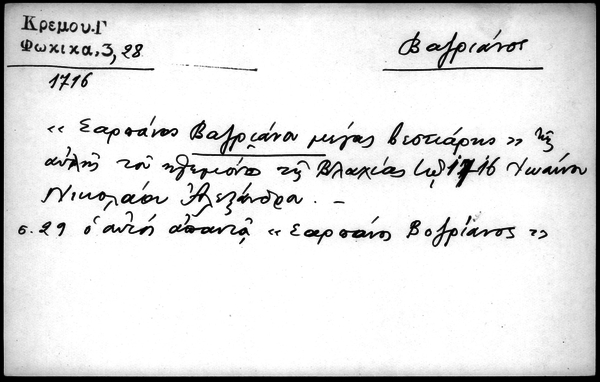 Κρεμου.Γ
Φωκικα, 3, 28
Βαγριάνος
1716
« Σαρσάνος Βαγριάνου μέγας βεστιάρης » τῆς
αὐλῆς τοῦ ἡγεμόνος τῆς Βλαχίας τῷ 1716 Ἰωάννου
Νικολάου Ἀλεξάνδρου. –
σ. 29 ὁ αὐτός ἀπαντᾷ « Σαρσάνος Βογριάνος »